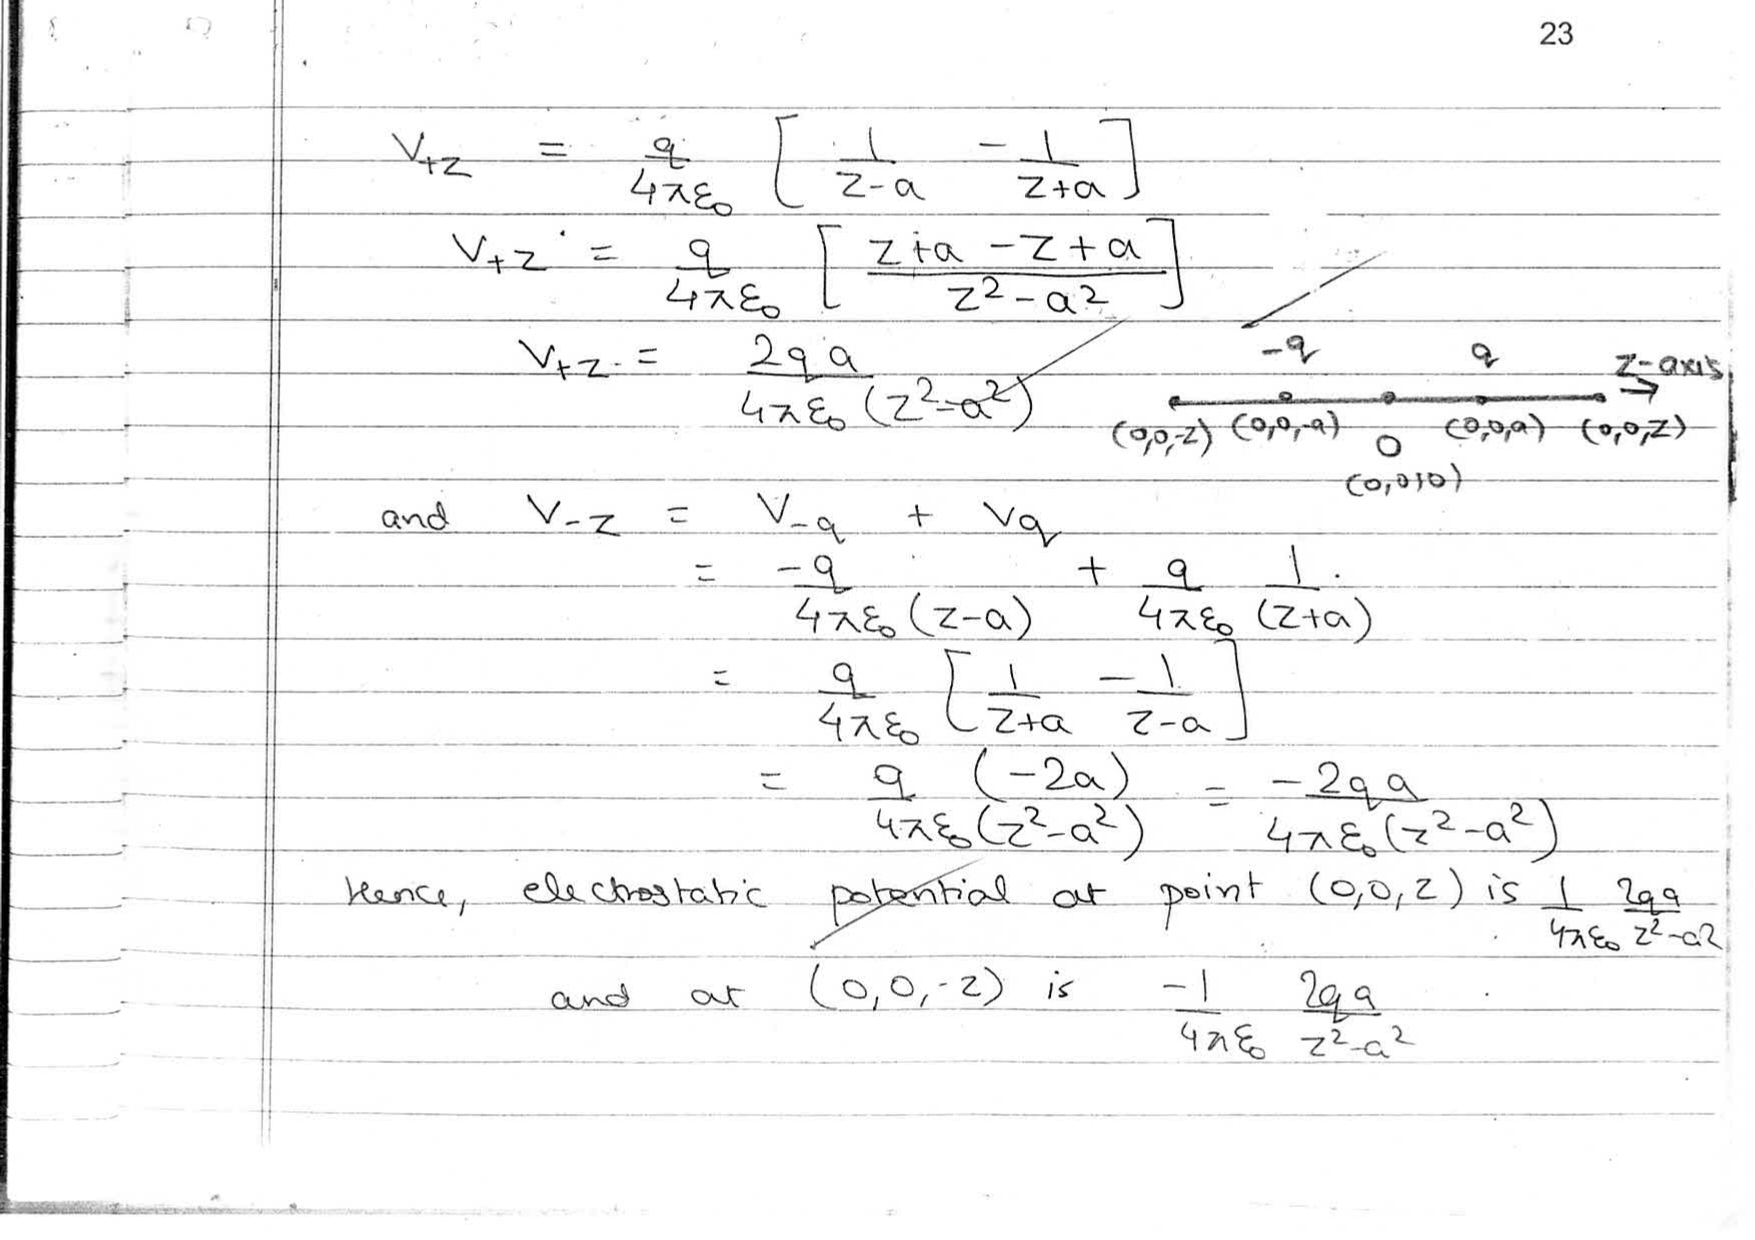 23
V₊z = q/4πε₀ [ 1/z-a - 1/z+a ]
V₊z = q/4πε₀ [ z+a -z+a / z²-a² ]
V₊z = 2qa / 4πε₀ (z²-a²)
-q q z-axis
(0,0,-z) (0,0,-a) O (0,0,a) (0,0,z)
(0,0,0)
and V₋z = V₋q + Vq
= -q / 4πε₀ (z-a) + q/4πε₀ 1/(z+a)
= q/4πε₀ [ 1/z+a - 1/z-a ]
= q (-2a) / 4πε₀ (z²-a²) = -2qa / 4πε₀ (z²-a²)
Hence, electrostatic potential at point (0,0,z) is 1/4πε₀ 2qa/z²-a²
and at (0,0,-z) is -1/4πε₀ 2qa/z²-a²